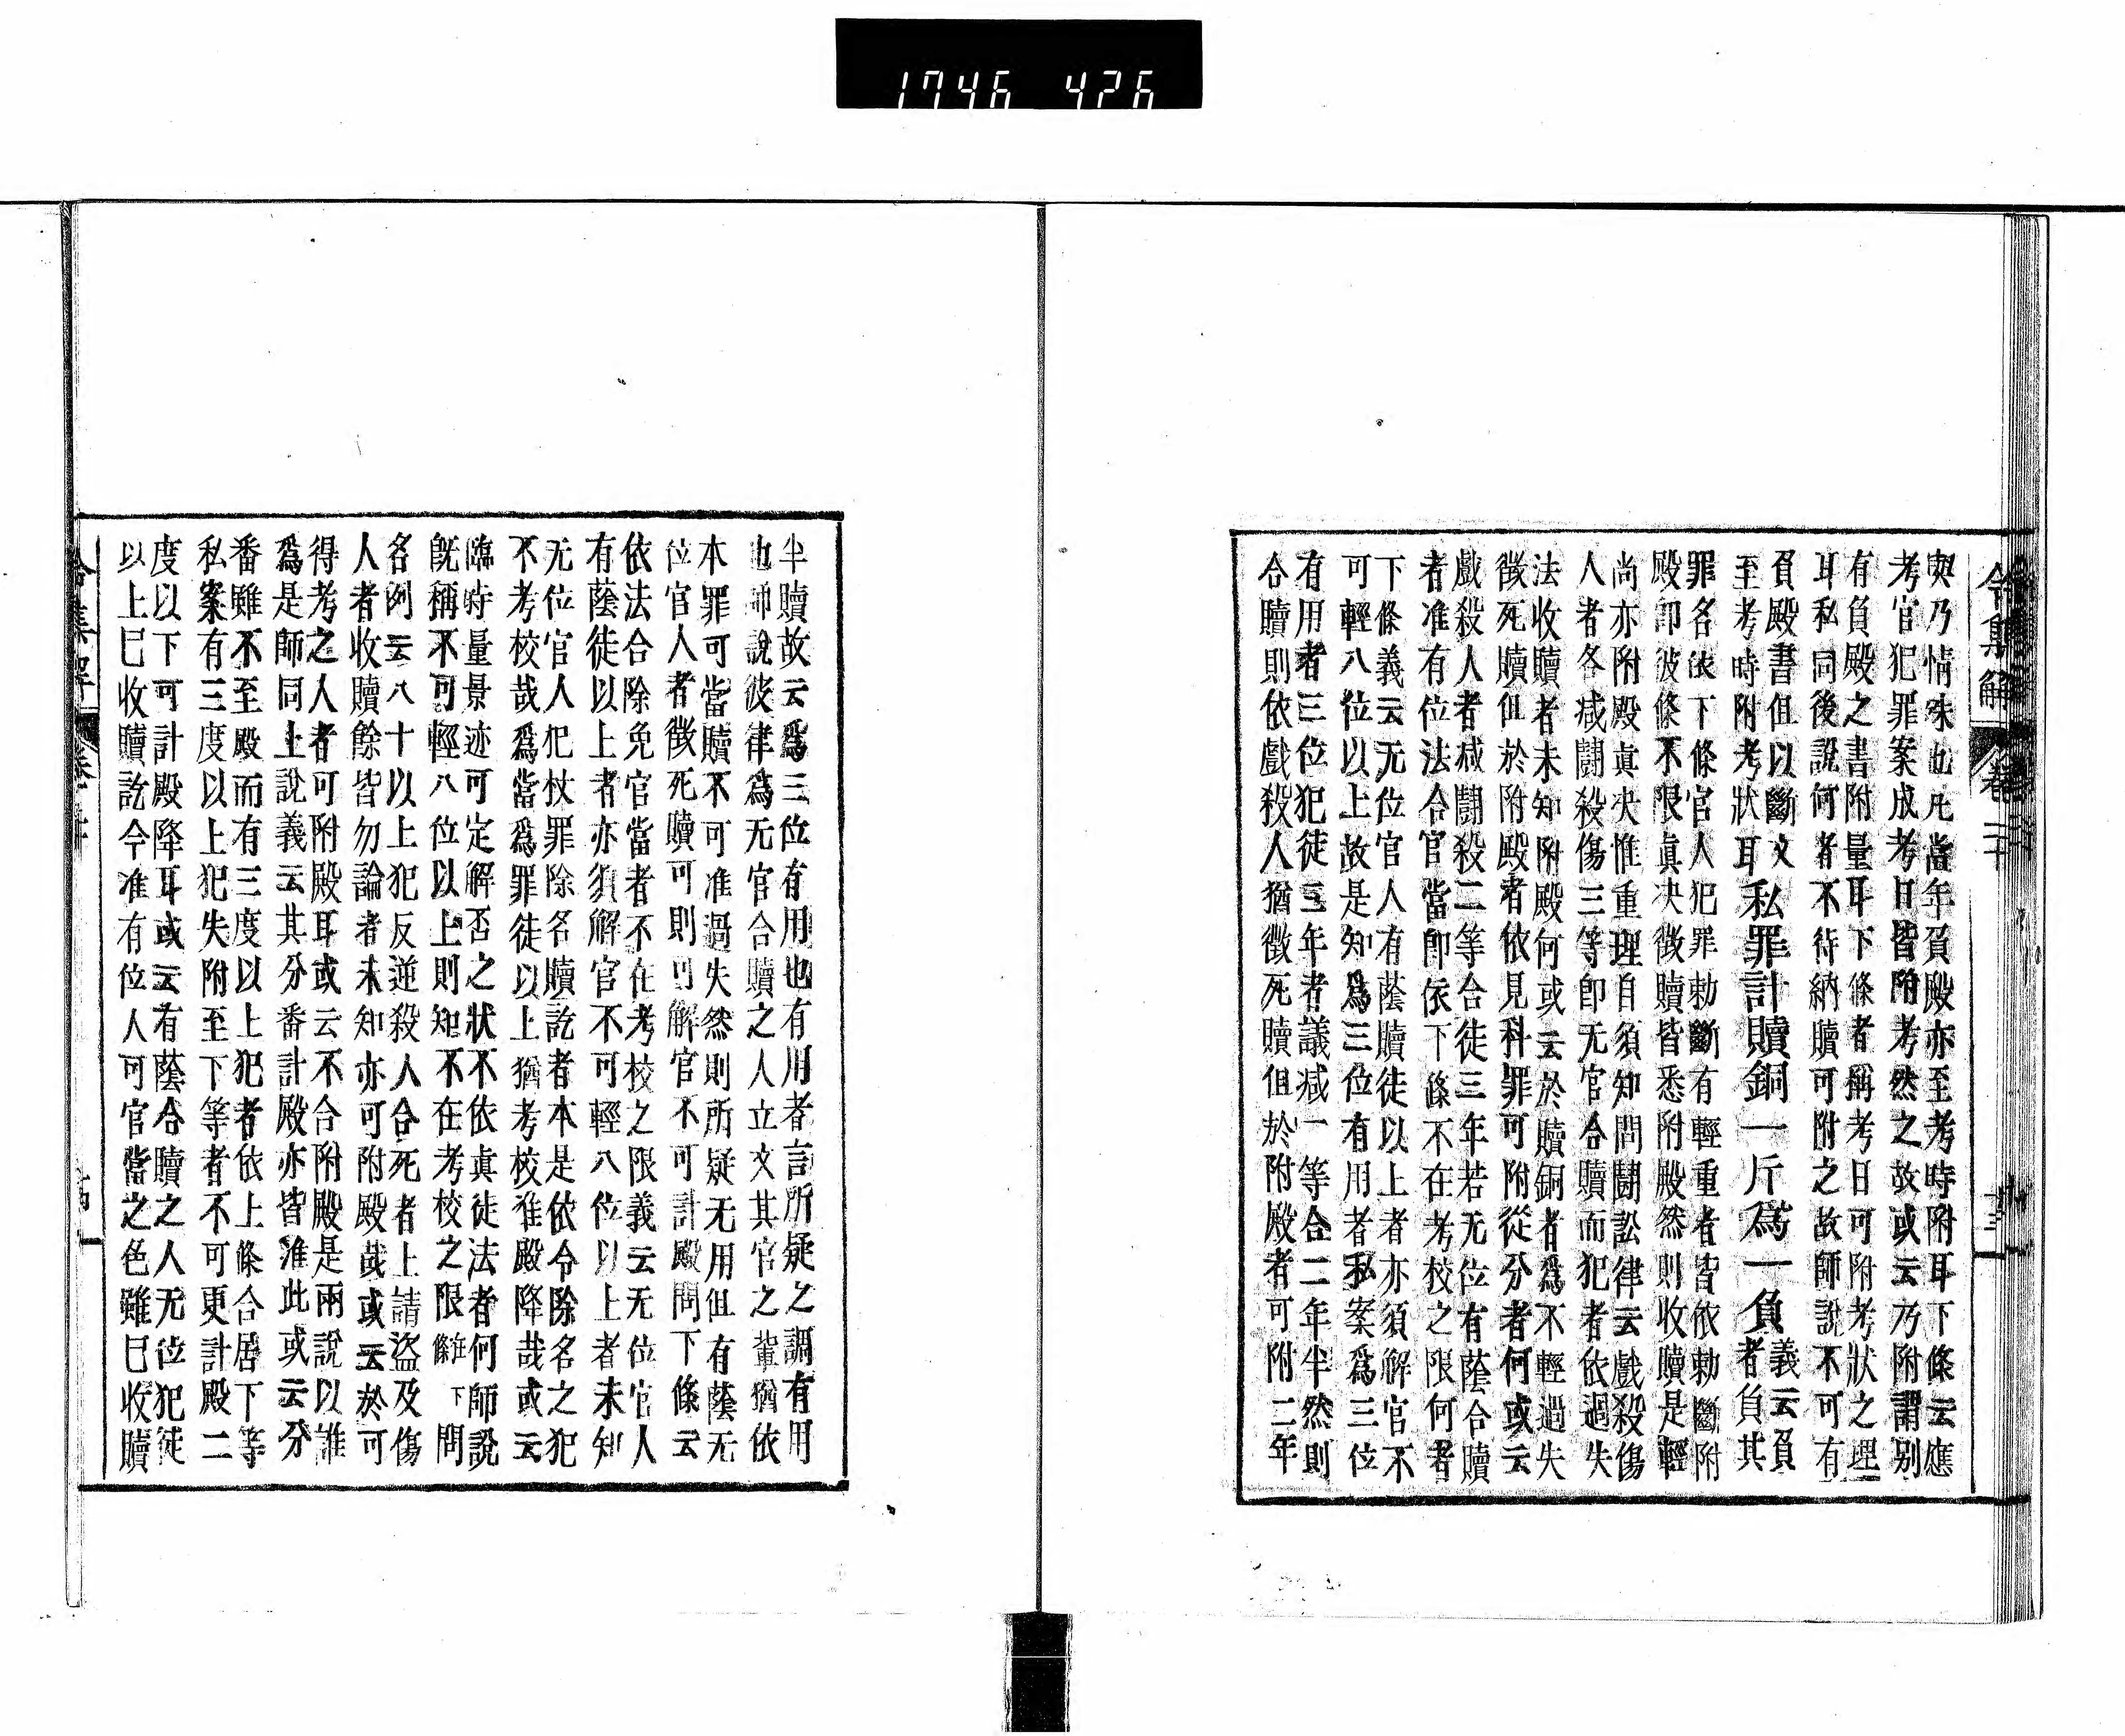 1746 426
令集解 卷二十
與乃情殊也凡當年負殿亦至考時附耳下條云應
考官犯罪案成考日皆附考然之故或云乃附謂別
有負殿之書附量耳下條者稱考日可附考狀之理
耳私同後說何者不待納贖可附之故師說不可有
負殿書但以斷文
至考時附考狀耳
私罪計贖銅一斤爲一負
義云負
者負其
罪名依下條官人犯罪勅斷有輕重者皆依勅斷附
殿卽彼條不限眞决徵贖皆悉附殿然則收贖是輕
尚亦附殿眞决惟重理自須知問鬪訟律云戲殺傷
人者各减鬪殺傷三等卽无官合贖而犯者依過失
法收贖者未知附殿何或云於贖銅者爲不輕過失
徵死贖但於附殿者依見科罪可附從分者何或云
戲殺人者减鬪殺二等合徒三年若无位有蔭合贖
者准有位法合官當卽依下條不在考校之限何者
下條義云无位官人有蔭贖徒以上者亦須解官不
可輕八位以上故是知爲三位有用者私案爲三位
有用者三位犯徒三年者議减一等合二年半然則
合贖則依戲殺人猶徵死贖但於附殿者可附二年
半贖故云爲三位有用也有用者言所疑之謂有用
也師說彼律爲无官合贖之人立文其官之輩猶依
本罪可當贖不可准過失然則所疑无用但有蔭无
位官人者徵死贖可則可解官不可計殿問下條云
依法合除免官當者不在考校之限義云无位官人
有蔭徒以上者亦須解官不可輕八位以上者未知
无位官人犯杖罪除名贖訖者本是依令除名之犯
不考校哉爲當爲罪徒以上猶考校准殿降哉或云
臨時量景迹可定解否之狀不依眞徒法者何師說
旣稱不可輕八位以上則知不在考校之限雜下條問
名例云八十以上犯反逆殺人合死者上請盜及傷
人者收贖餘皆勿論者未知亦可附殿哉或云於可
得考之人者可附殿耳或云不合附殿是兩說以誰
爲是師同上說義云其分番計殿亦皆准此或云分
番雖不至殿而有三度以上犯者依上條合居下等
私案有三度以上犯失附至下等者不可更計殿二
度以下可計殿降耳或云有蔭合贖之人无位犯徒
以上已收贖訖今准有位人可官當之色雖已收贖